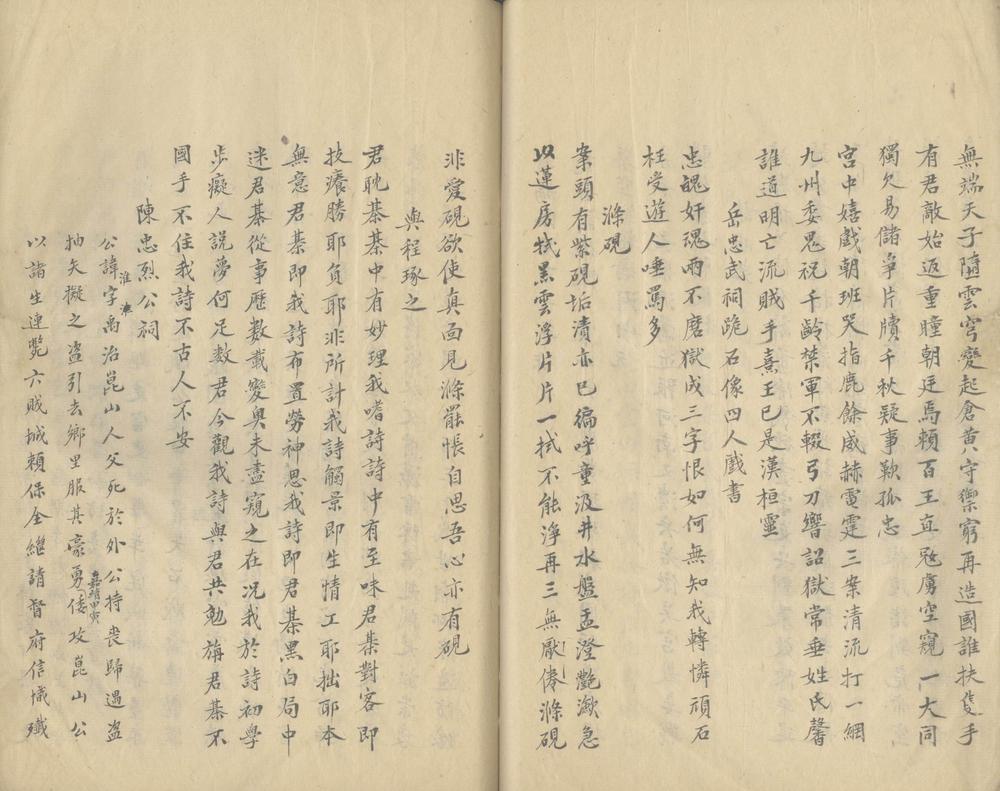 無端天子隨雲穹變起倉黃守禦窮再造國誰扶隻手
有君敵始返重瞳朝廷焉賴百王直寇虜空窺一大同
獨欠易儲爭片牘千秋疑事歎孤忠
宮中嬉戲朝班哭指鹿餘威赫電霆三案清流打一網
九州委鬼祝千齡禁軍不輟弓刀響詔獄常垂姓氏馨
誰道明亡流賊手熹王已是漢桓靈
岳忠武祠跪石像四人戲書
忠魄奸魂兩不磨獄成三字恨如何無知我轉憐頑石
枉受遊人唾罵多
滌硯
案頭有紫硯垢漬亦已徧呼童汲井水盤盂澄艷瀲急
以蓮房拭黑雲浮片片一拭不能淨再三無厭倦滌硯
非愛硯欲使真面見滌罷悵自思吾心亦有硯
與程琢之
君耽棊棊中有妙理我嗜詩詩中有至味君棊對客即
技癢勝耶負耶非所計我詩觸景即生情工耶拙耶本
無意君棊即我詩布置勞神思我詩即君棊黑白局中
迷君棊從事歷數載變奧未盡窺之在况我於詩初學
步癡人說夢何足數君今觀我詩與君共勉旃君棊不
國手不住我詩不古人不安
陳忠烈公祠
公諱淮字禹治崑山人父死於外公持喪歸遇盜
抽矢擬之盜引去鄉里服其豪勇嘉靖甲寅倭攻崑山公
以諸生連斃六賊城賴保全繼請督府信幟殲